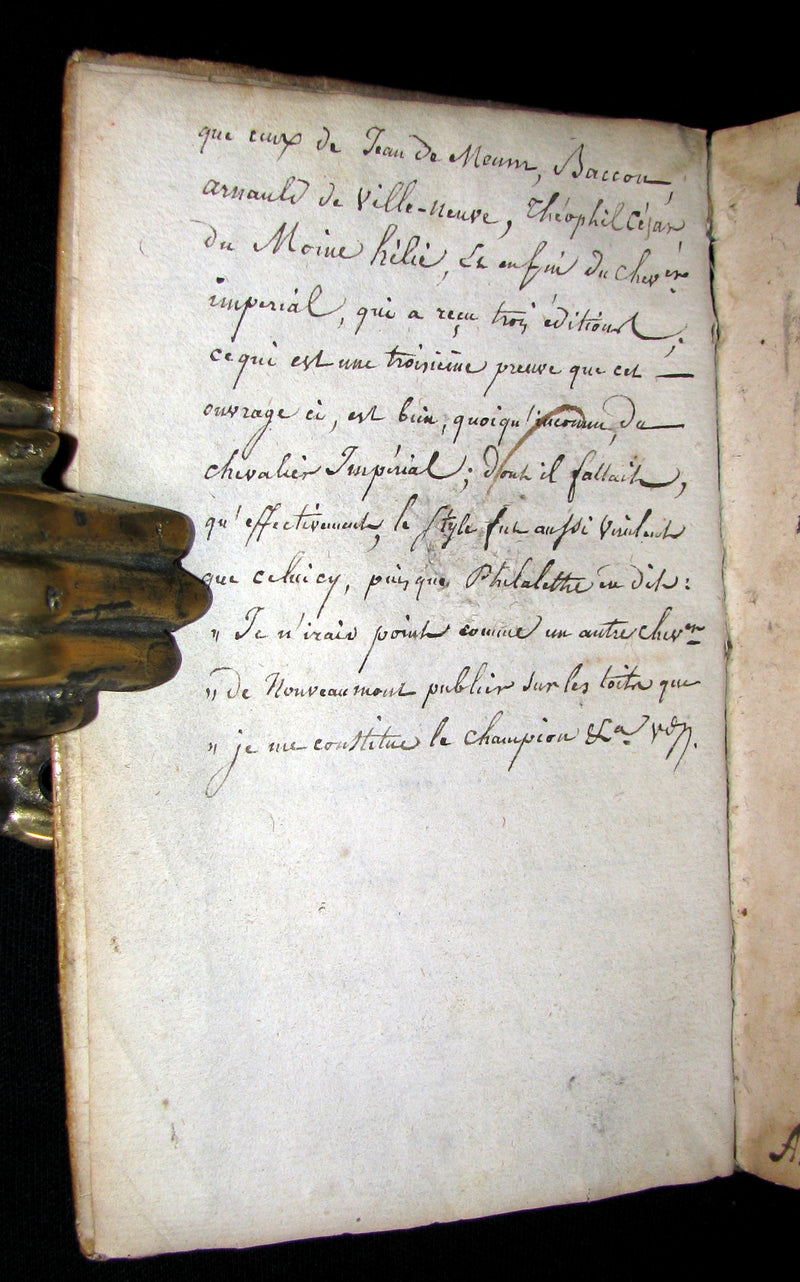 que ceux de Jean de Meum, Baccon,
arnauld de Ville-neuve, Théophil César,
du Moine hélie, Et enfin du chever
imperial, qui a reçu trois éditions ;
ce qui est une troisieme preuve que cet —
ouvrage ci, est bien, quoiqu'inconnu, du —
chevalier Impérial ; dont il fallait,
qu'effectivement, le style fut aussi virulent
que celuicy, puisque Philalethe en dit :
" Je n'irais point comme un autre chever
" de Nouveaumont publier sur les toits que
" je me constitue le champion &a
A